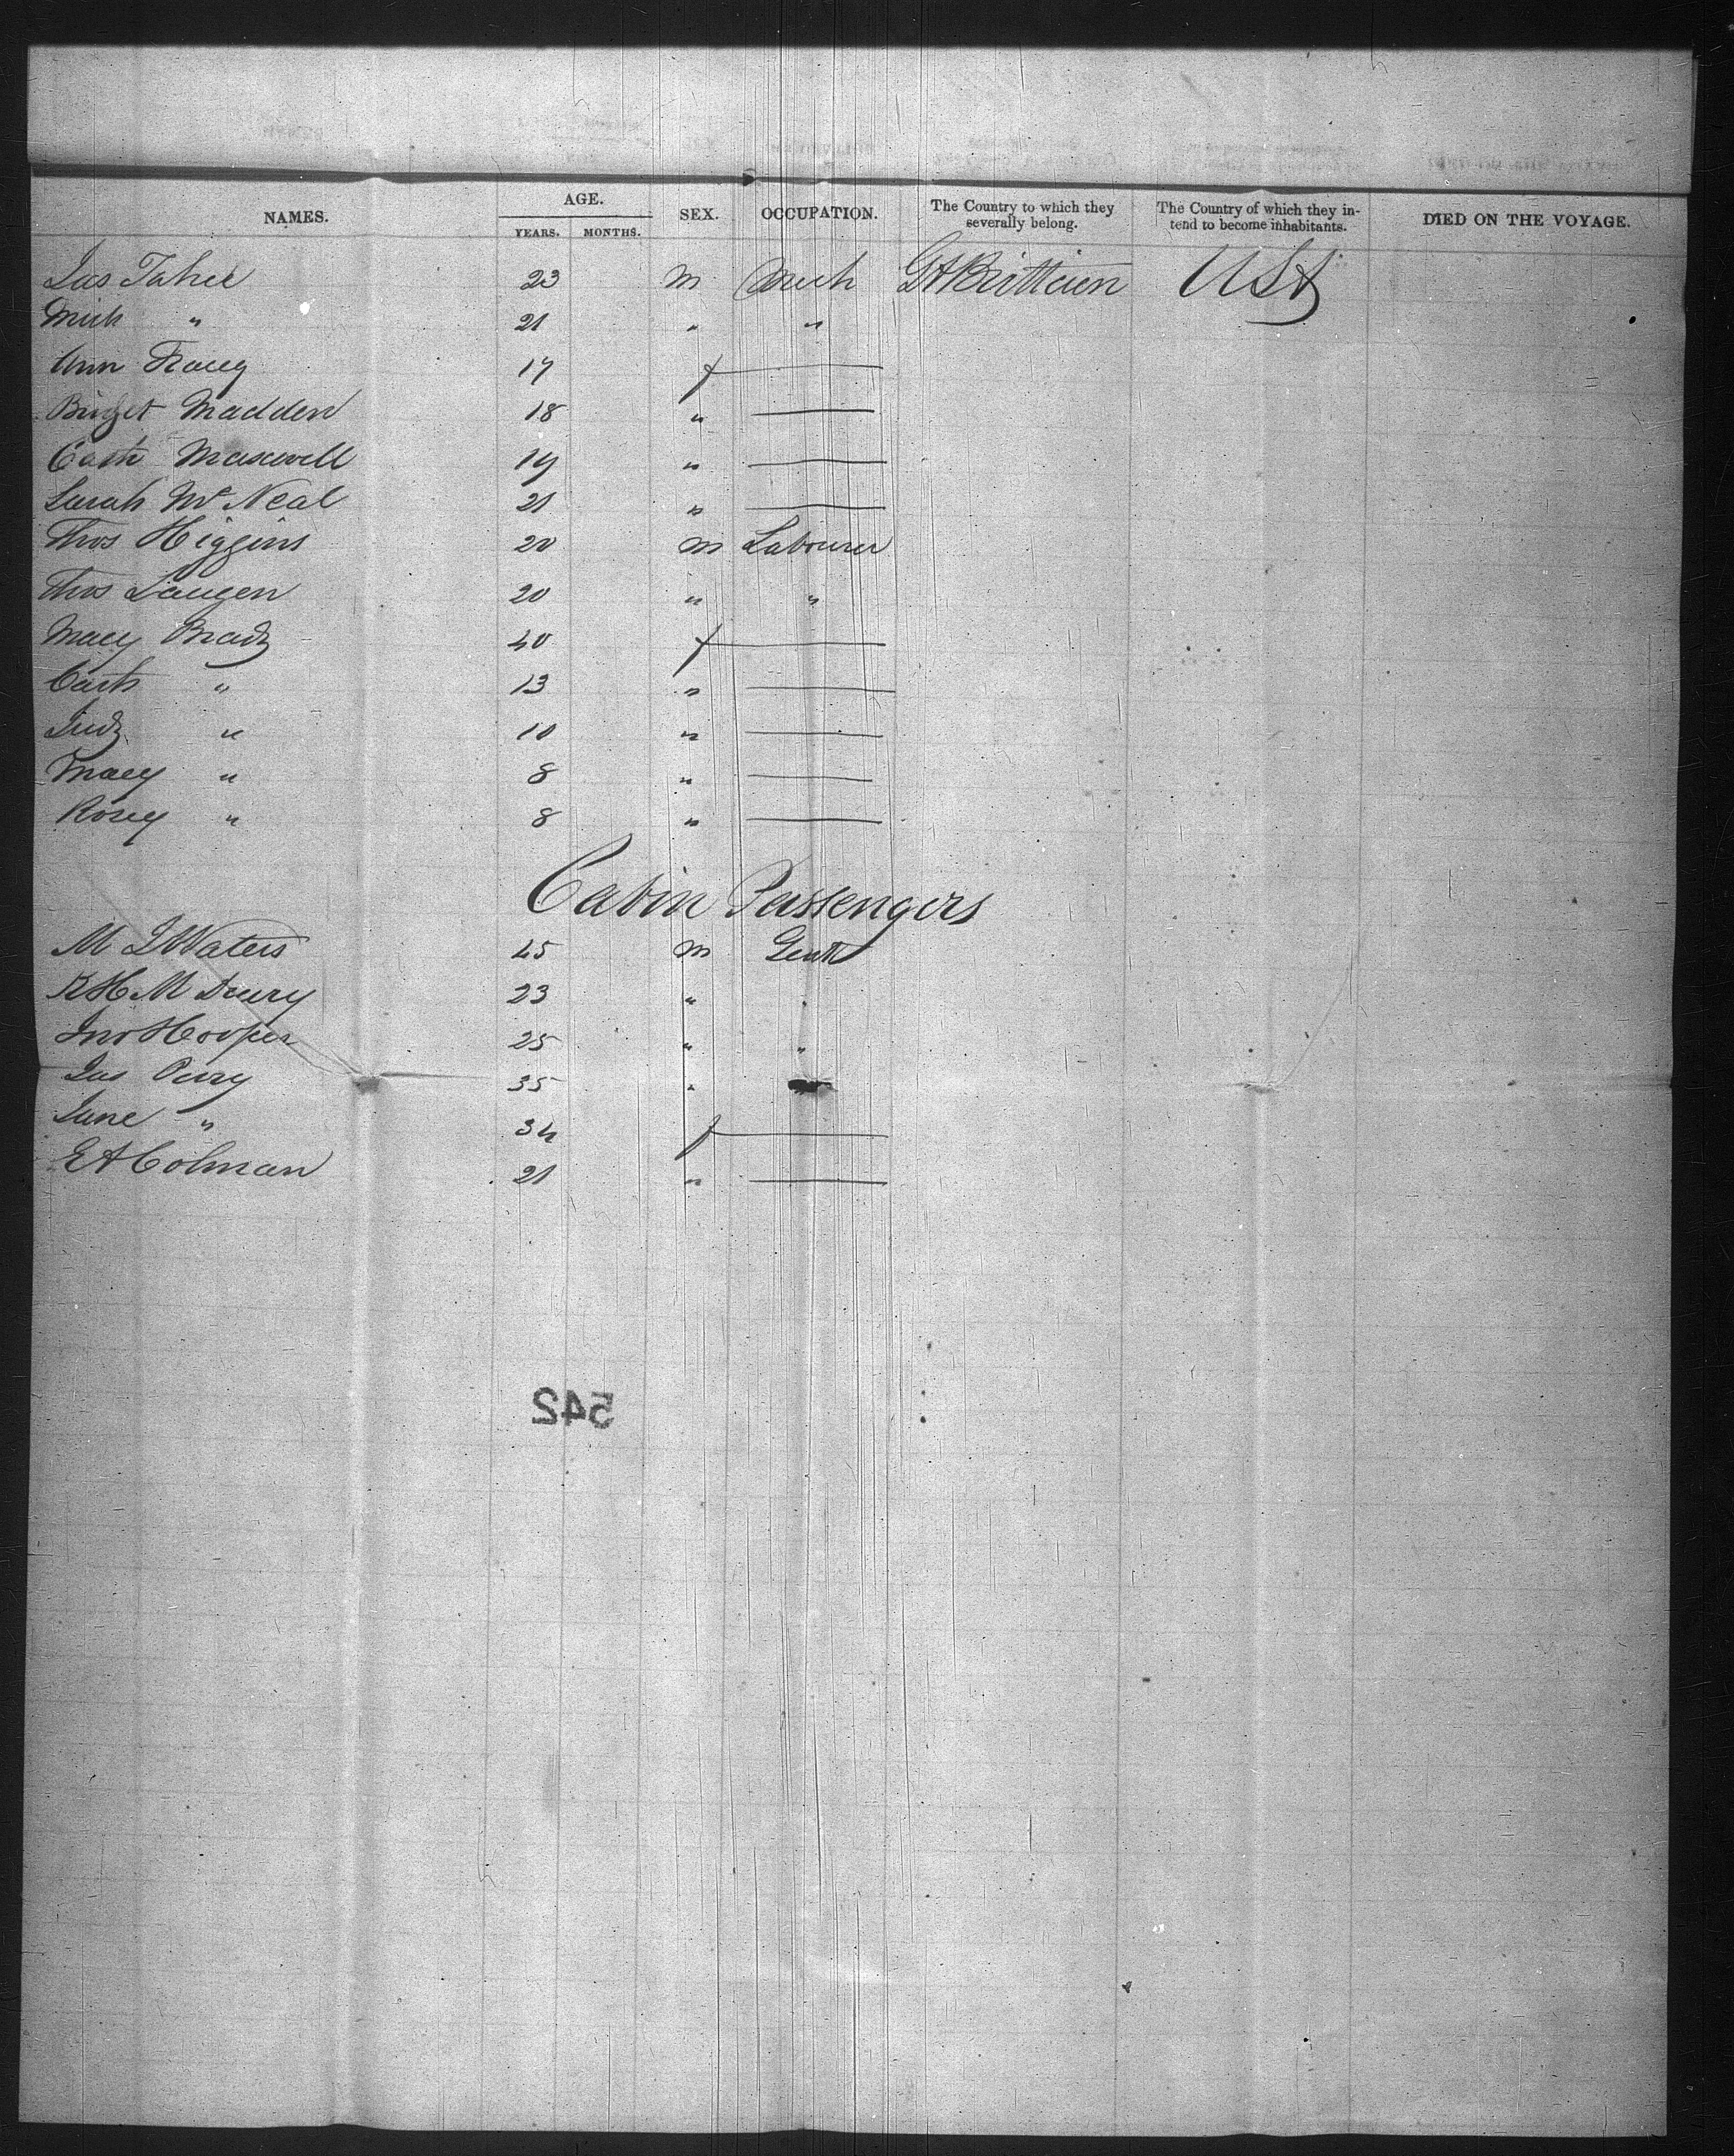 NAMES. AGE. SEX. OCCUPATION. The Country to which they severally belong. The Country of which they intend to become inhabitants. DIED ON THE VOYAGE.
YEARS. MONTHS.
Jas 23 m Mech Gt Brittain USA
Mich " 21 " "
Ann Tracey 17 f
Bridget Madden 18 "
Cath Maxwell 19 "
Sarah McNeal 21 "
Thos Higgins 20 m Labourer
Thos 20 " "
Mary Brady 40 f
Cath " 13 "
Judy " 10 "
Mary " 8 "
Rosey " 8 "
Cabin Passengers
M J Waters 45 m Gent
R H M Drury 23 "
Jno Hooper 25 " "
Jas Perry 35 "
Jane " 34 f
E A Colman 21 "
542